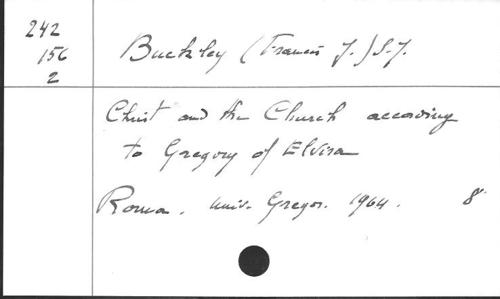 242
156
2
Buckley (Francis J.) S.J.
Christ and the Church according
to Gregory of Elvira
Roma. Univ. Gregor. 1964. 8